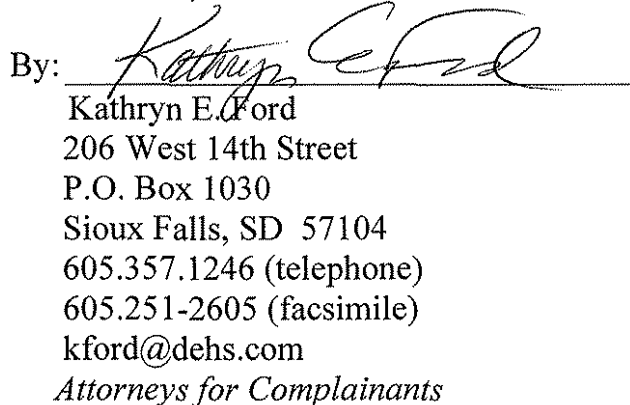 By: Kathryn E Ford
Kathryn E. Ford
206 West 14th Street
P.O. Box 1030
Sioux Falls, SD 57104
605.357.1246 (telephone)
605.251-2605 (facsimile)
kford@dehs.com
Attorneys for Complainants